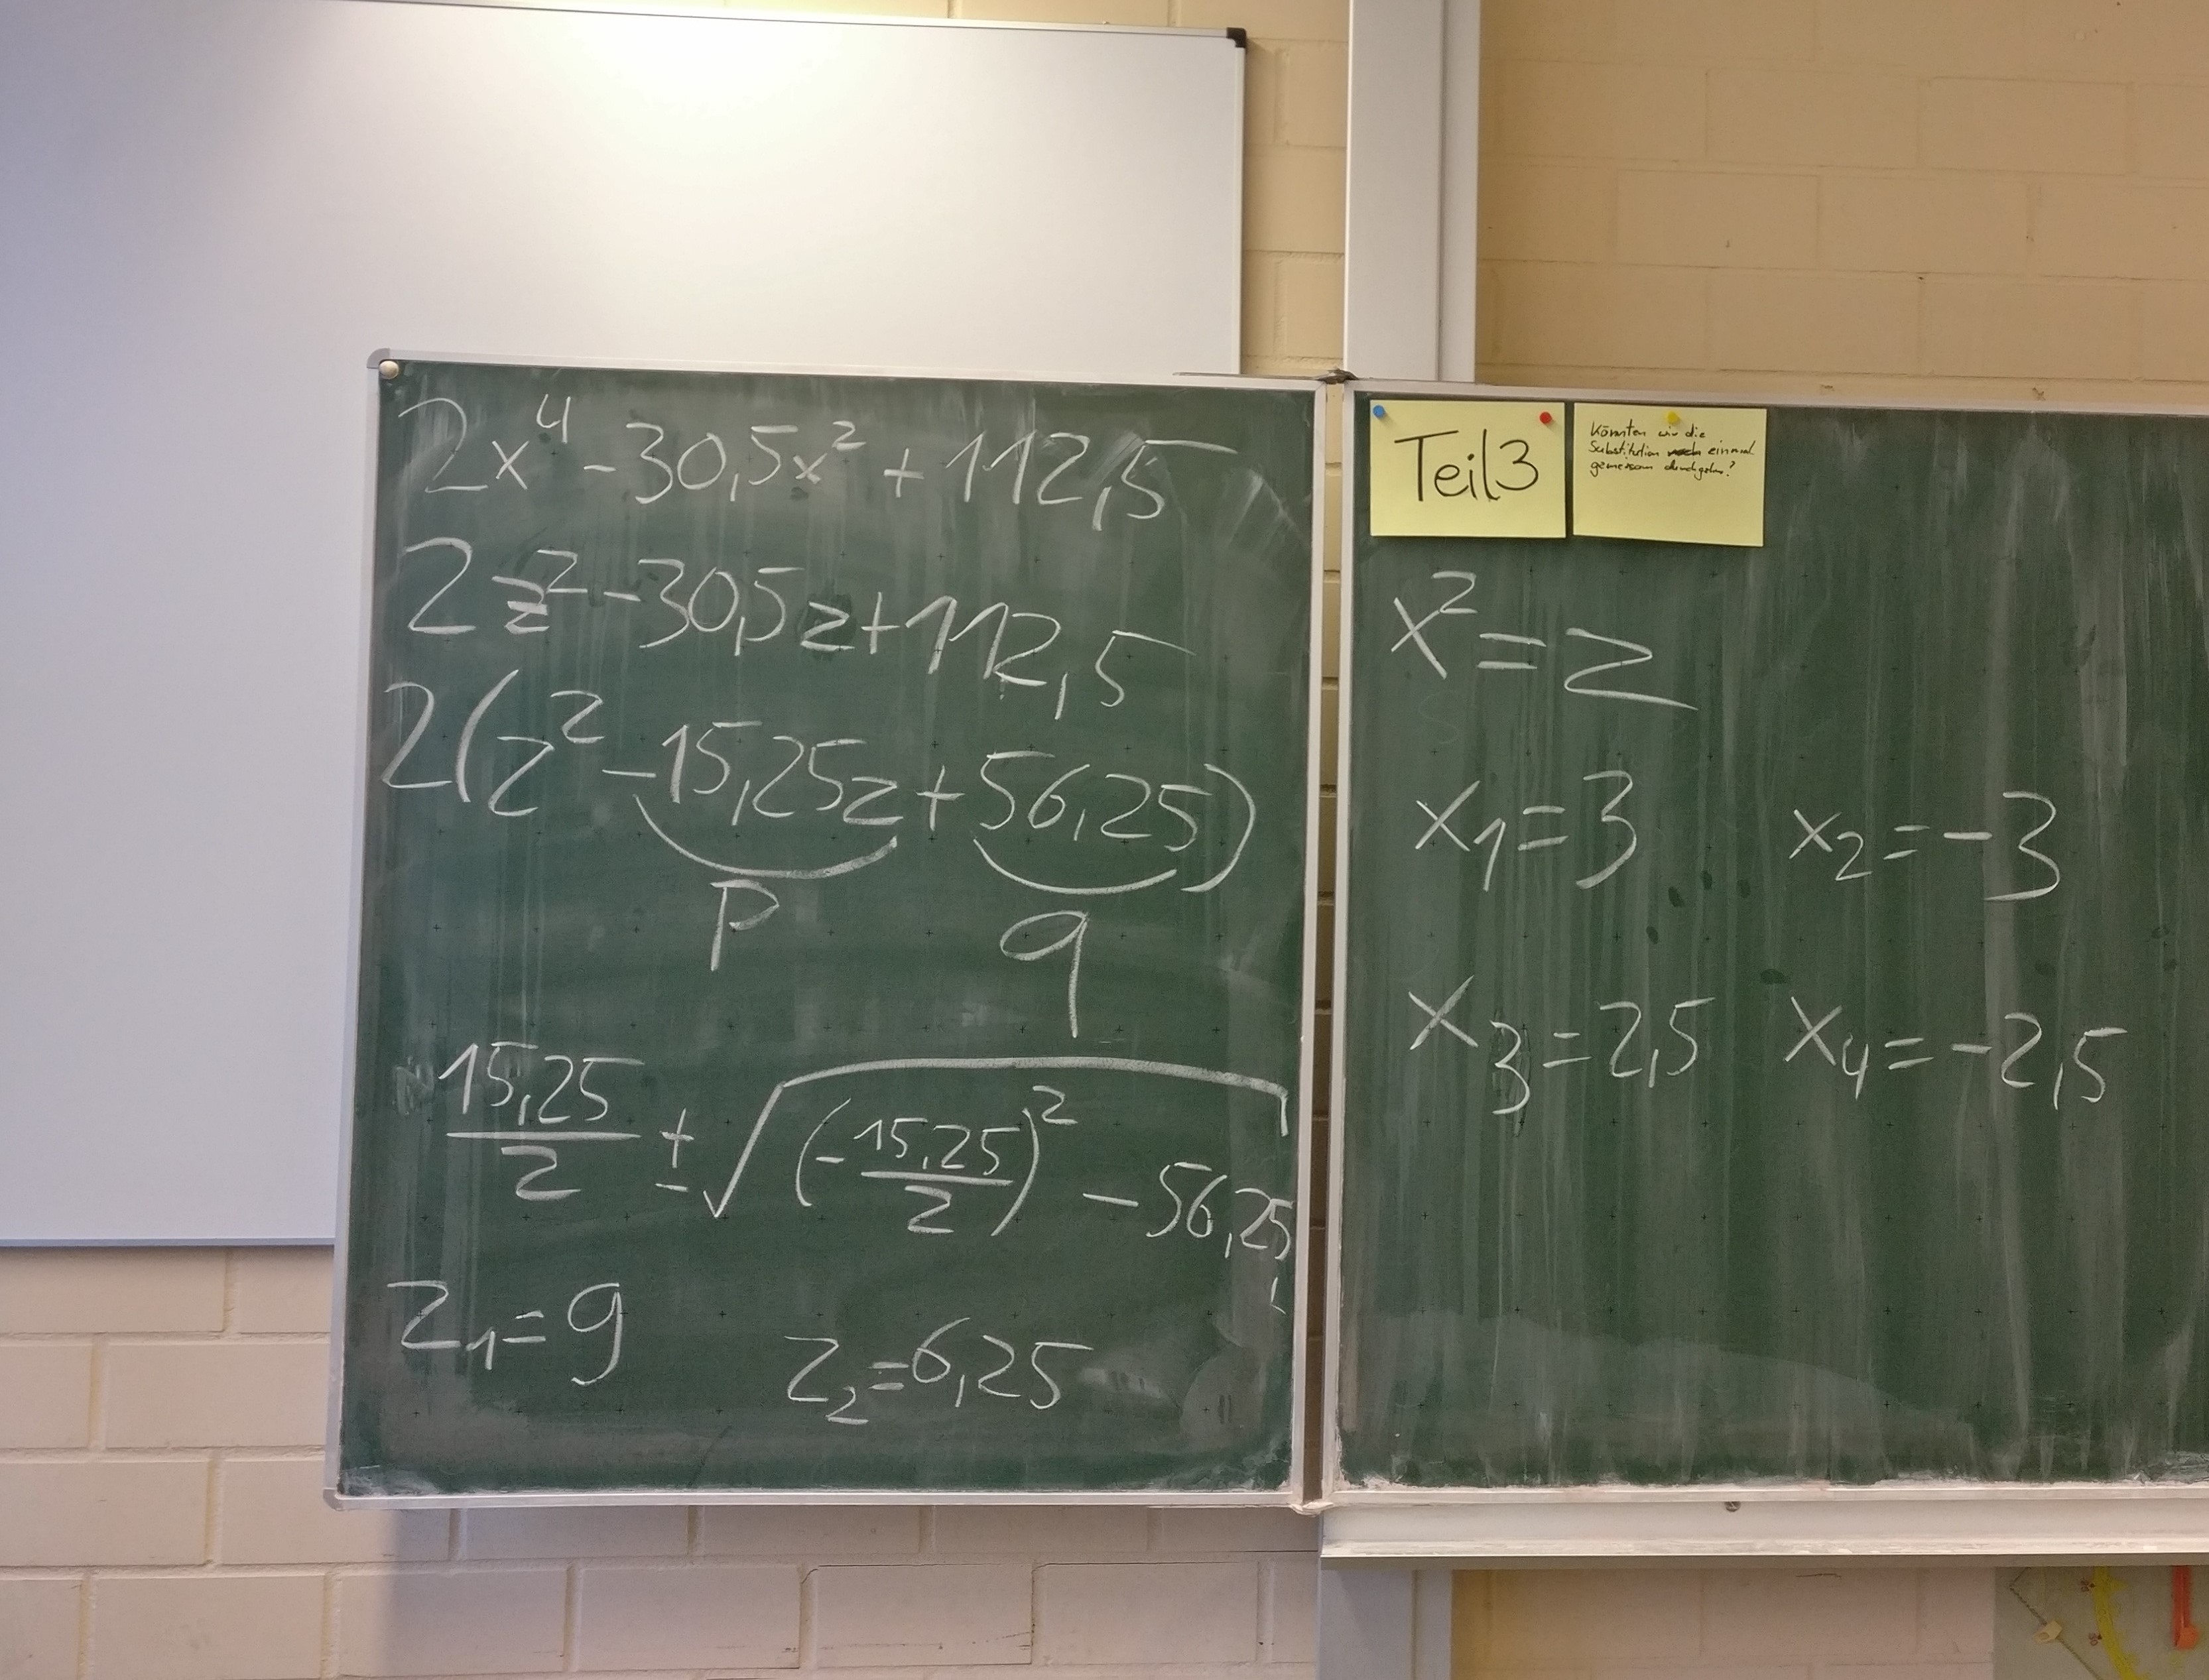 2x⁴ - 30,5x² + 112,5
2z² - 30,5z + 112,5
2(z² - 15,25z + 56,25)
p q
15,25/2 ± √((-15,25/2)² - 56,25)
z₁ = 9 z₂ = 6,25
Teil 3
Könnten wir die
Substitution einmal
gemeinsam durchgehen?
x² = z
x₁ = 3 x₂ = -3
x₃ = 2,5 x₄ = -2,5